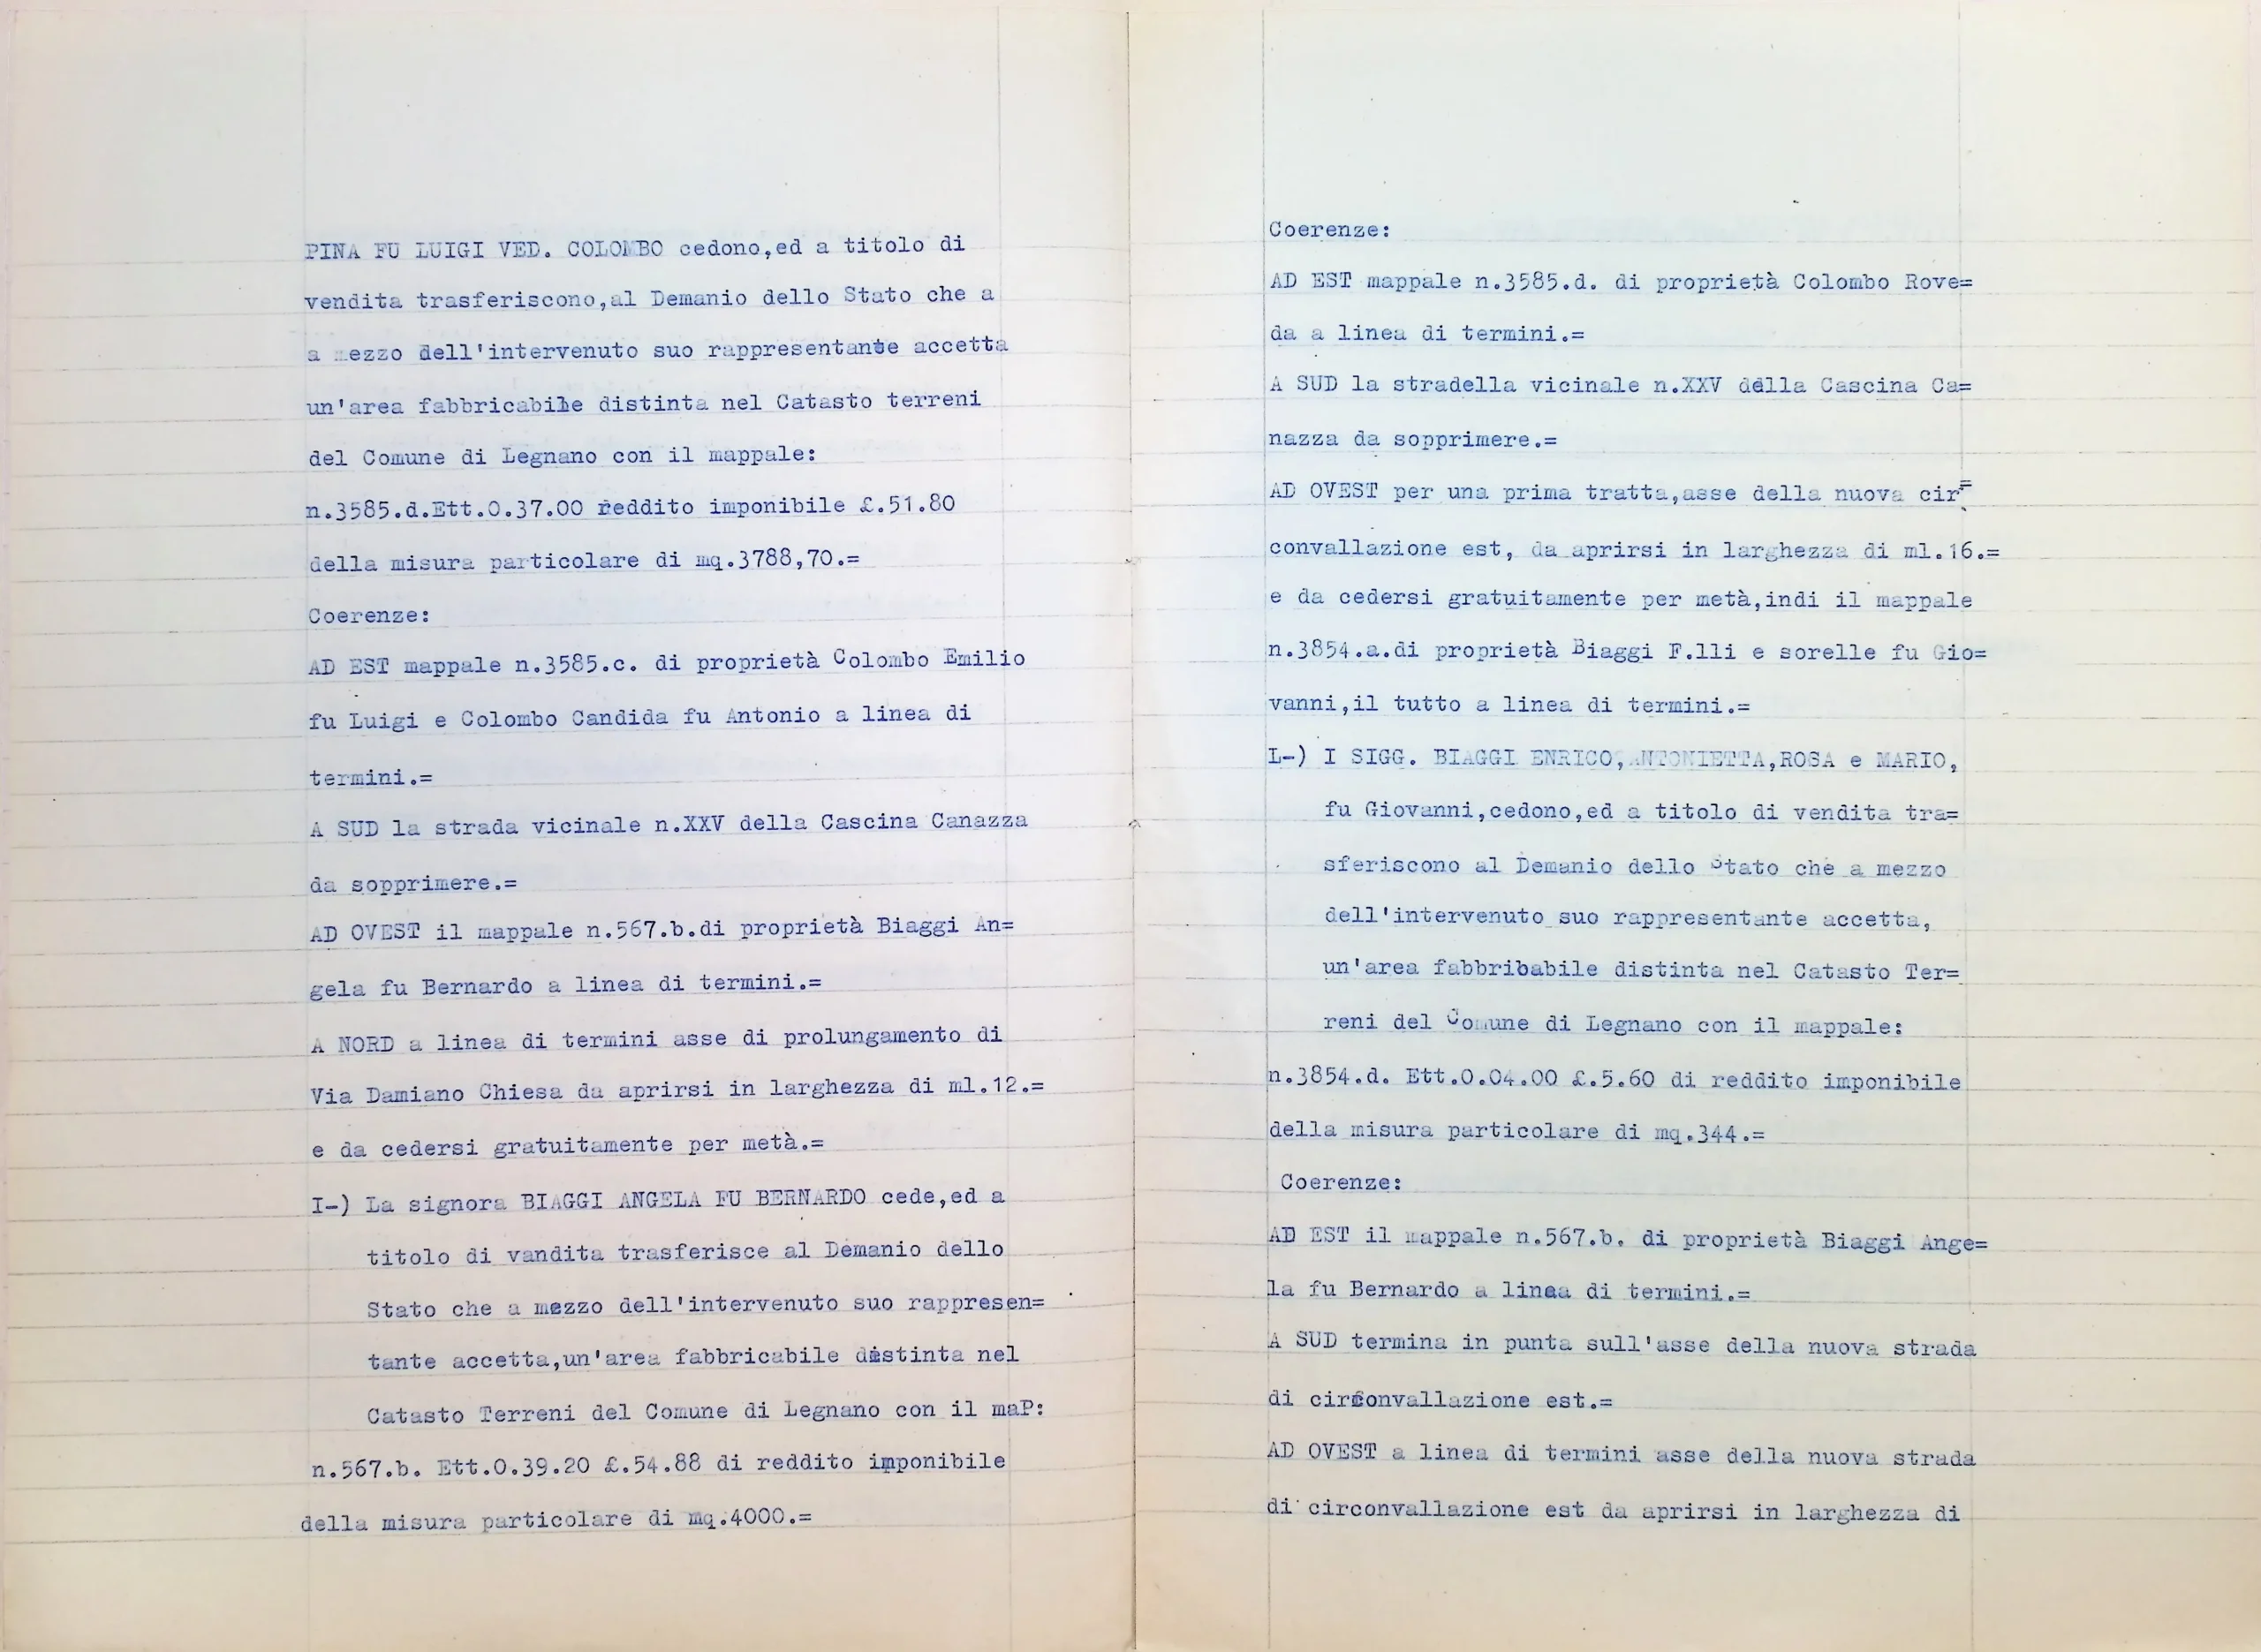 PINA FU LUIGI VED. COLOMBO cedono,ed a titolo di
vendita trasferiscono,al Demanio dello Stato che a
a mezzo dell'intervenuto suo rappresentante accetta
un'area fabbricabile distinta nel Catasto terreni
del Comune di Legnano con il mappale:
n.3585.d.Ett.0.37.00 reddito imponibile £.51.80
della misura particolare di mq.3788,70.=
Coerenze:
AD EST mappale n.3585.c. di proprietà Colombo Emilio
fu Luigi e Colombo Candida fu Antonio a linea di
termini.=
A SUD la strada vicinale n.XXV della Cascina Canazza
da sopprimere.=
AD OVEST il mappale n.567.b.di proprietà Biaggi An=
gela fu Bernardo a linea di termini.=
A NORD a linea di termini asse di prolungamento di
Via Damiano Chiesa da aprirsi in larghezza di ml.12.=
e da cedersi gratuitamente per metà.=
I-) La signora BIAGGI ANGELA FU BERNARDO cede,ed a
titolo di vandita trasferisce al Demanio dello
Stato che a mezzo dell'intervenuto suo rappresen=
tante accetta,un'area fabbricabile distinta nel
Catasto Terreni del Comune di Legnano con il maP:
n.567.b. Ett.0.39.20 £.54.88 di reddito imponibile
della misura particolare di mq.4000.=
Coerenze:
AD EST mappale n.3585.d. di proprietà Colombo Rove=
da a linea di termini.=
A SUD la stradella vicinale n.XXV della Cascina Ca=
nazza da sopprimere.=
AD OVEST per una prima tratta,asse della nuova cir=
convallazione est, da aprirsi in larghezza di ml.16.=
e da cedersi gratuitamente per metà,indi il mappale
n.3854.a.di proprietà Biaggi F.lli e sorelle fu Gio=
vanni,il tutto a linea di termini.=
L-) I SIGG. BIAGGI ENRICO,ANTONIETTA,ROSA e MARIO,
fu Giovanni,cedono,ed a titolo di vendita tra=
sferiscono al Demanio dello Stato che a mezzo
dell'intervenuto suo rappresentante accetta,
un'area fabbribabile distinta nel Catasto Ter=
reni del Comune di Legnano con il mappale:
n.3854.d. Ett.0.04.00 £.5.60 di reddito imponibile
della misura particolare di mq.344.=
Coerenze:
AD EST il mappale n.567.b. di proprietà Biaggi Ange=
la fu Bernardo a linea di termini.=
A SUD termina in punta sull'asse della nuova strada
di circonvallazione est.=
AD OVEST a linea di termini asse della nuova strada
di circonvallazione est da aprirsi in larghezza di